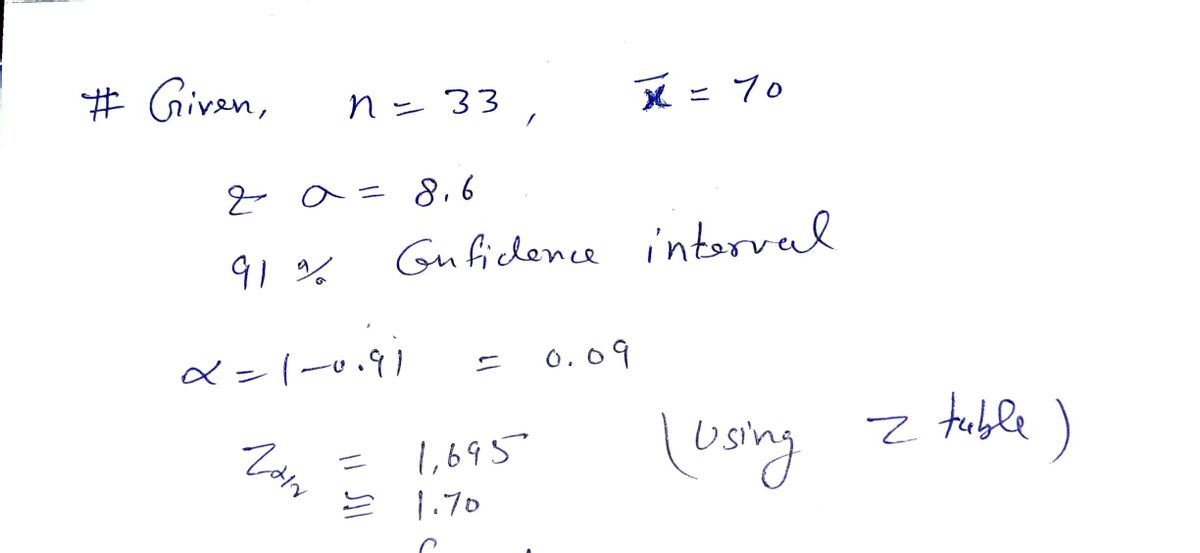 # Given, n = 33, x̄ = 70
& a = 8.6
91 % Confidence interval
α = 1-0.91 = 0.09
Zα/2 = 1.695 (Using z table)
≅ 1.70